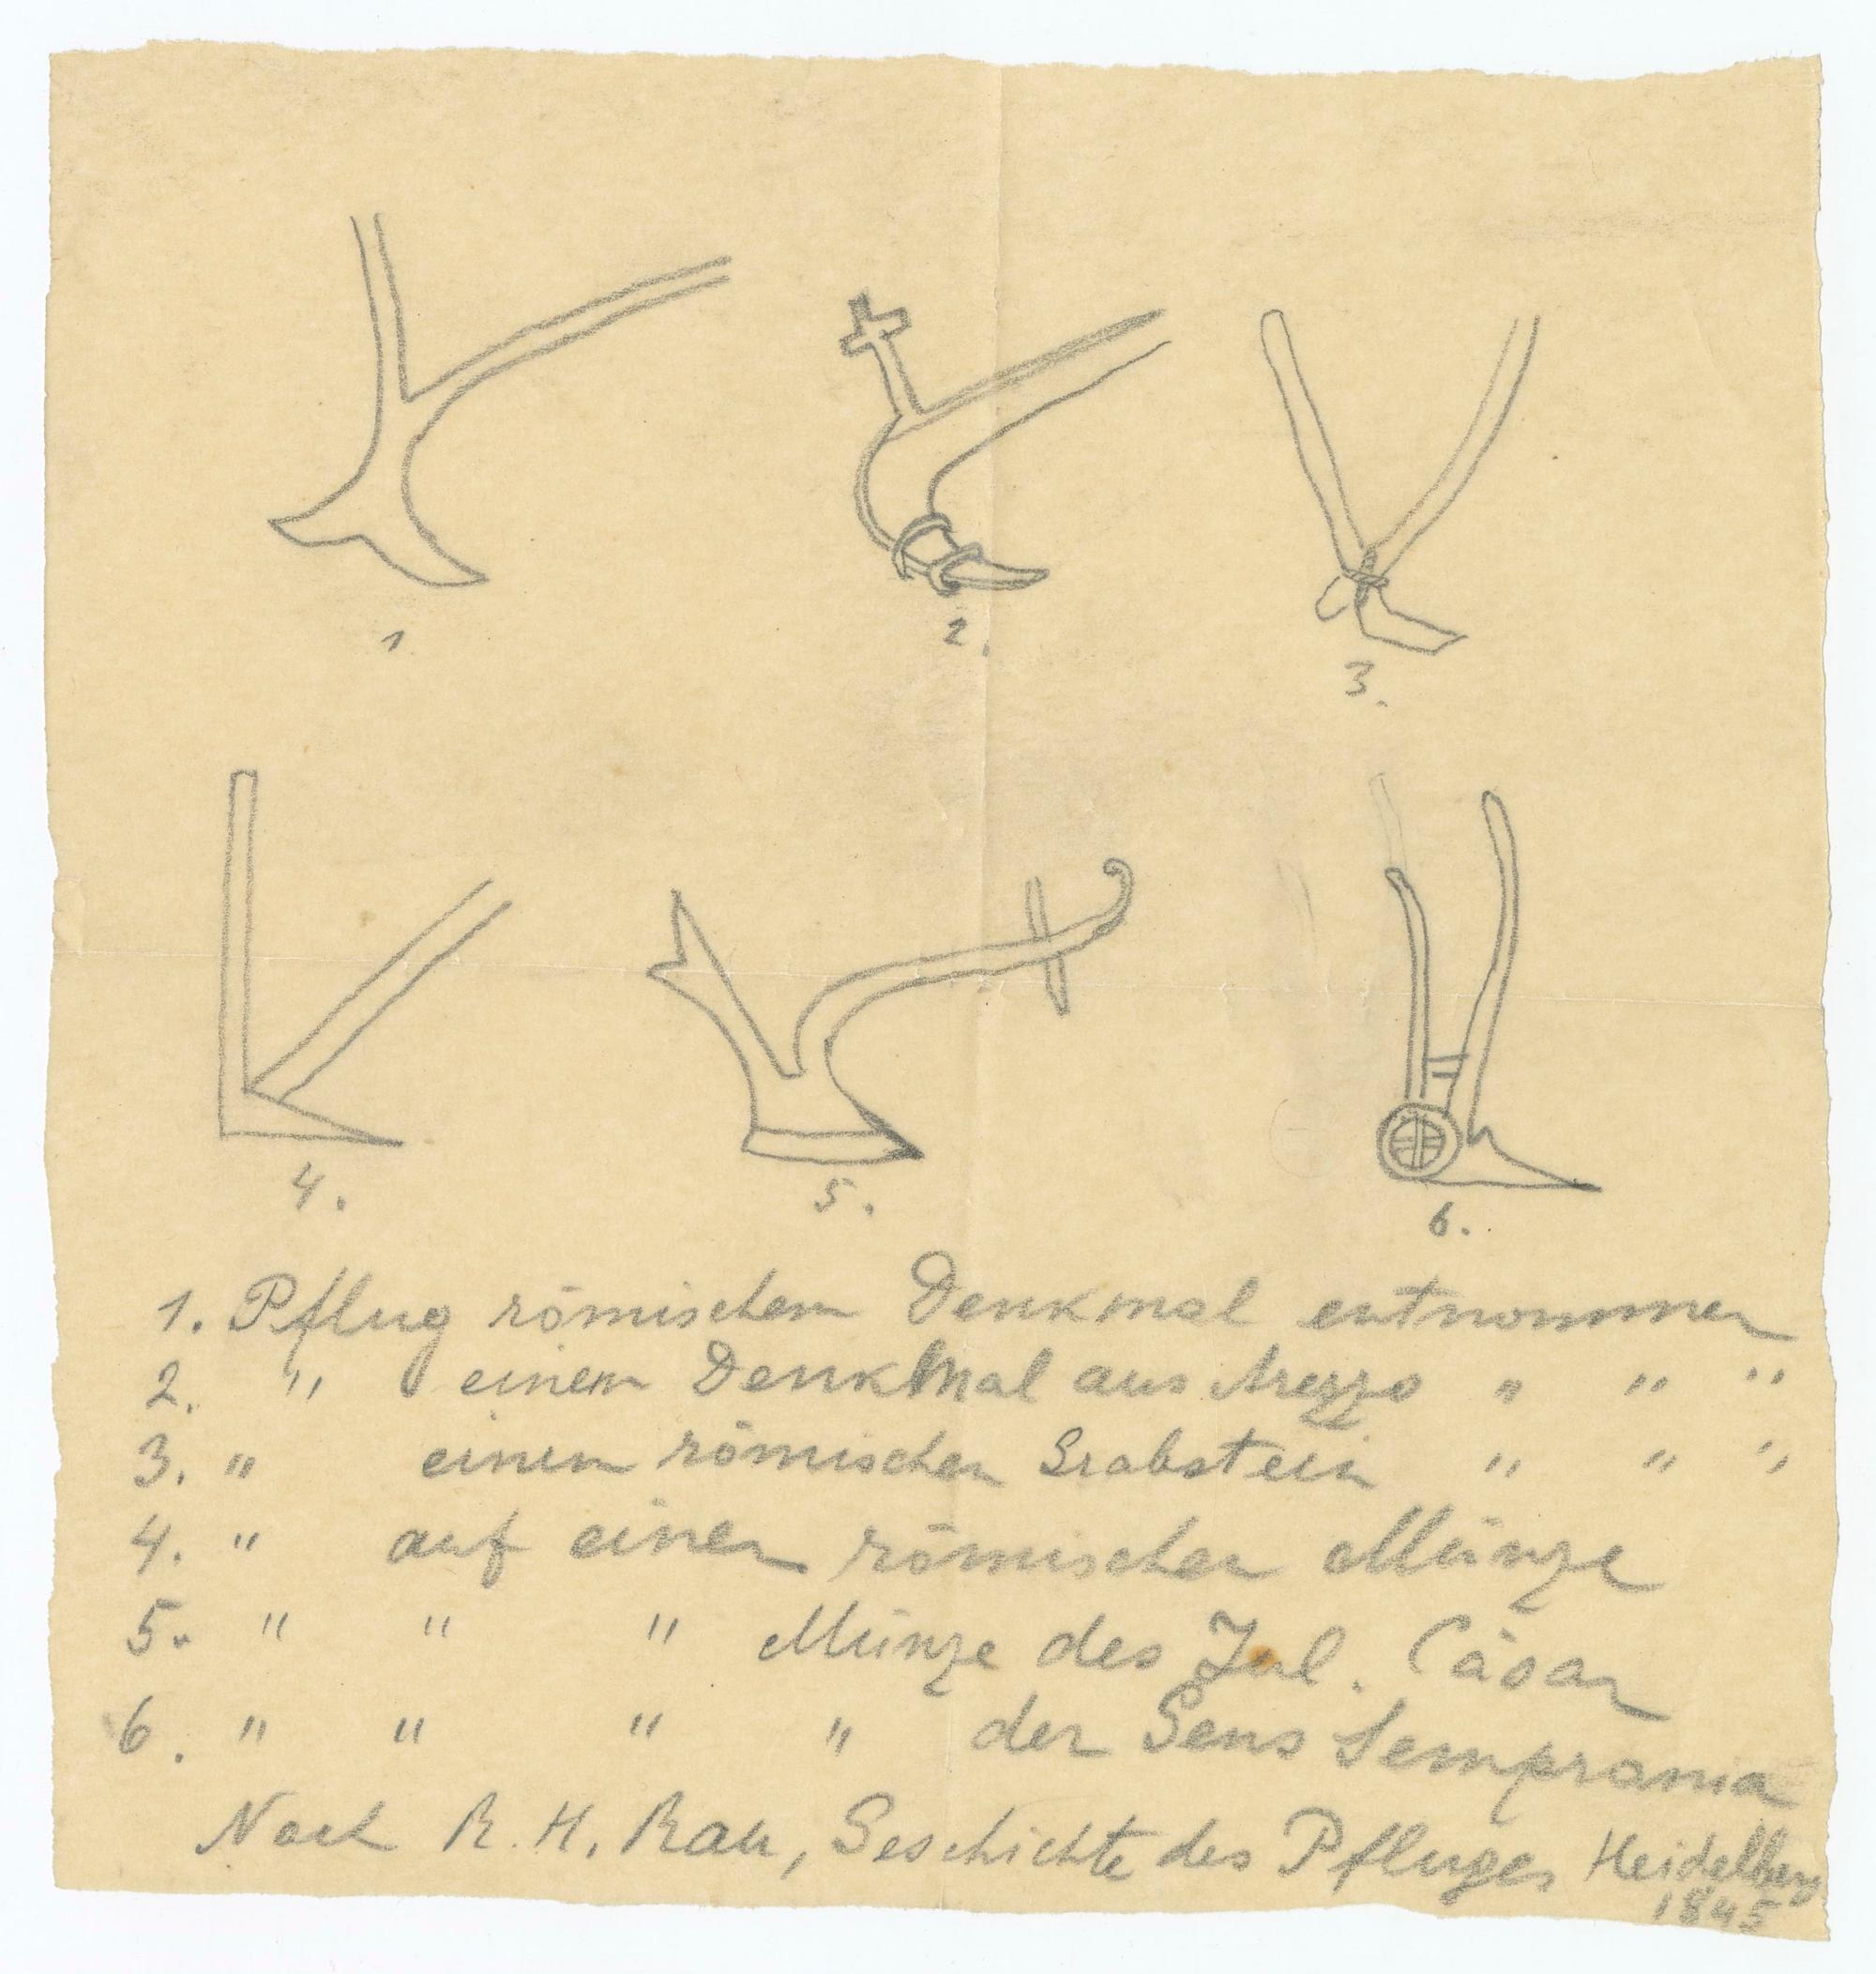 1.
2.
3.
4.
5.
6.
1. Pflug römischem Denkmal entnommen
2. " einem Denkmal aus Arezzo " " "
3. " einem römischen Grabstein " " "
4. " auf einer römischen Münze
5. " " " Münze des Jul. Cäsar
6. " " " " der Gens Sempronia
Nach R. H. Rau, Geschichte des Pfluges Heidelberg
1845